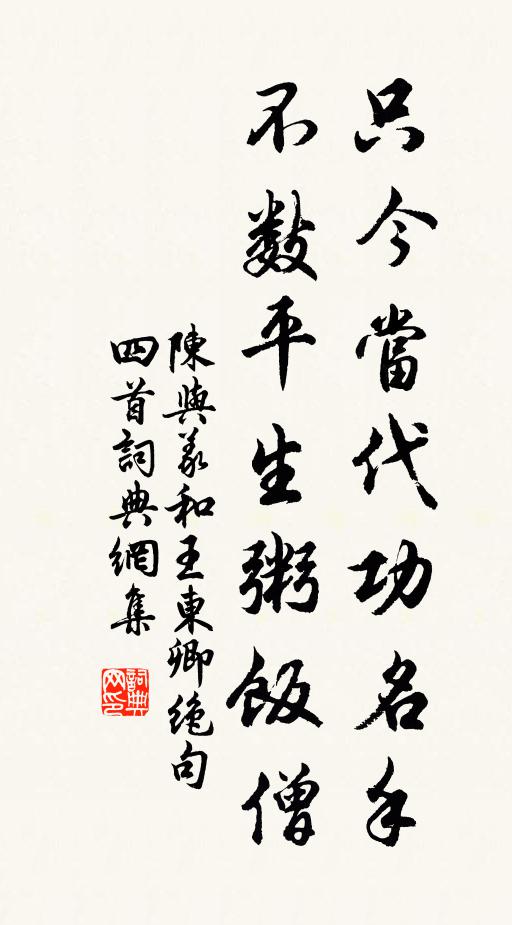 只今當代功名手
不數平生粥飯僧
陳與義和王東卿絕句
四首詞典網集
詞典
网印